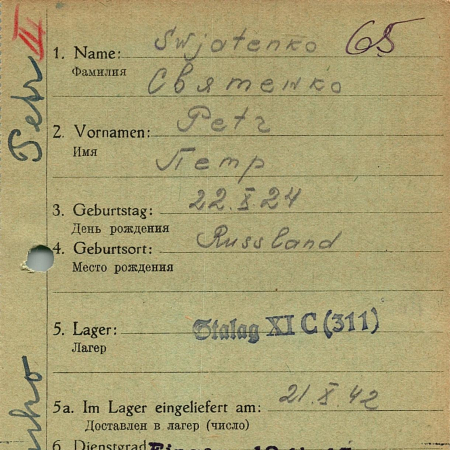 Petr II
1. Name: Swjatenko 65
Фамилия Святенко
2. Vornamen: Petr
Имя Петр
3. Geburtstag: 22.X.24
День рождения
4. Geburtsort: Russland
Место рождения
5. Lager: Stalag XI C (311)
Лагер
5a. Im Lager eingeliefert am: 21.X.42
Доставлен в лагер (число)
6. Dienstgrad